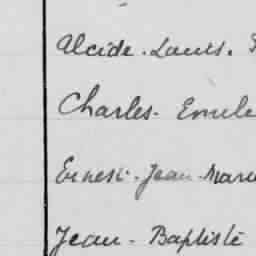 Alcide. Louis.
Charles. Emile
Ernest. Jean. Marie
Jean. Baptiste